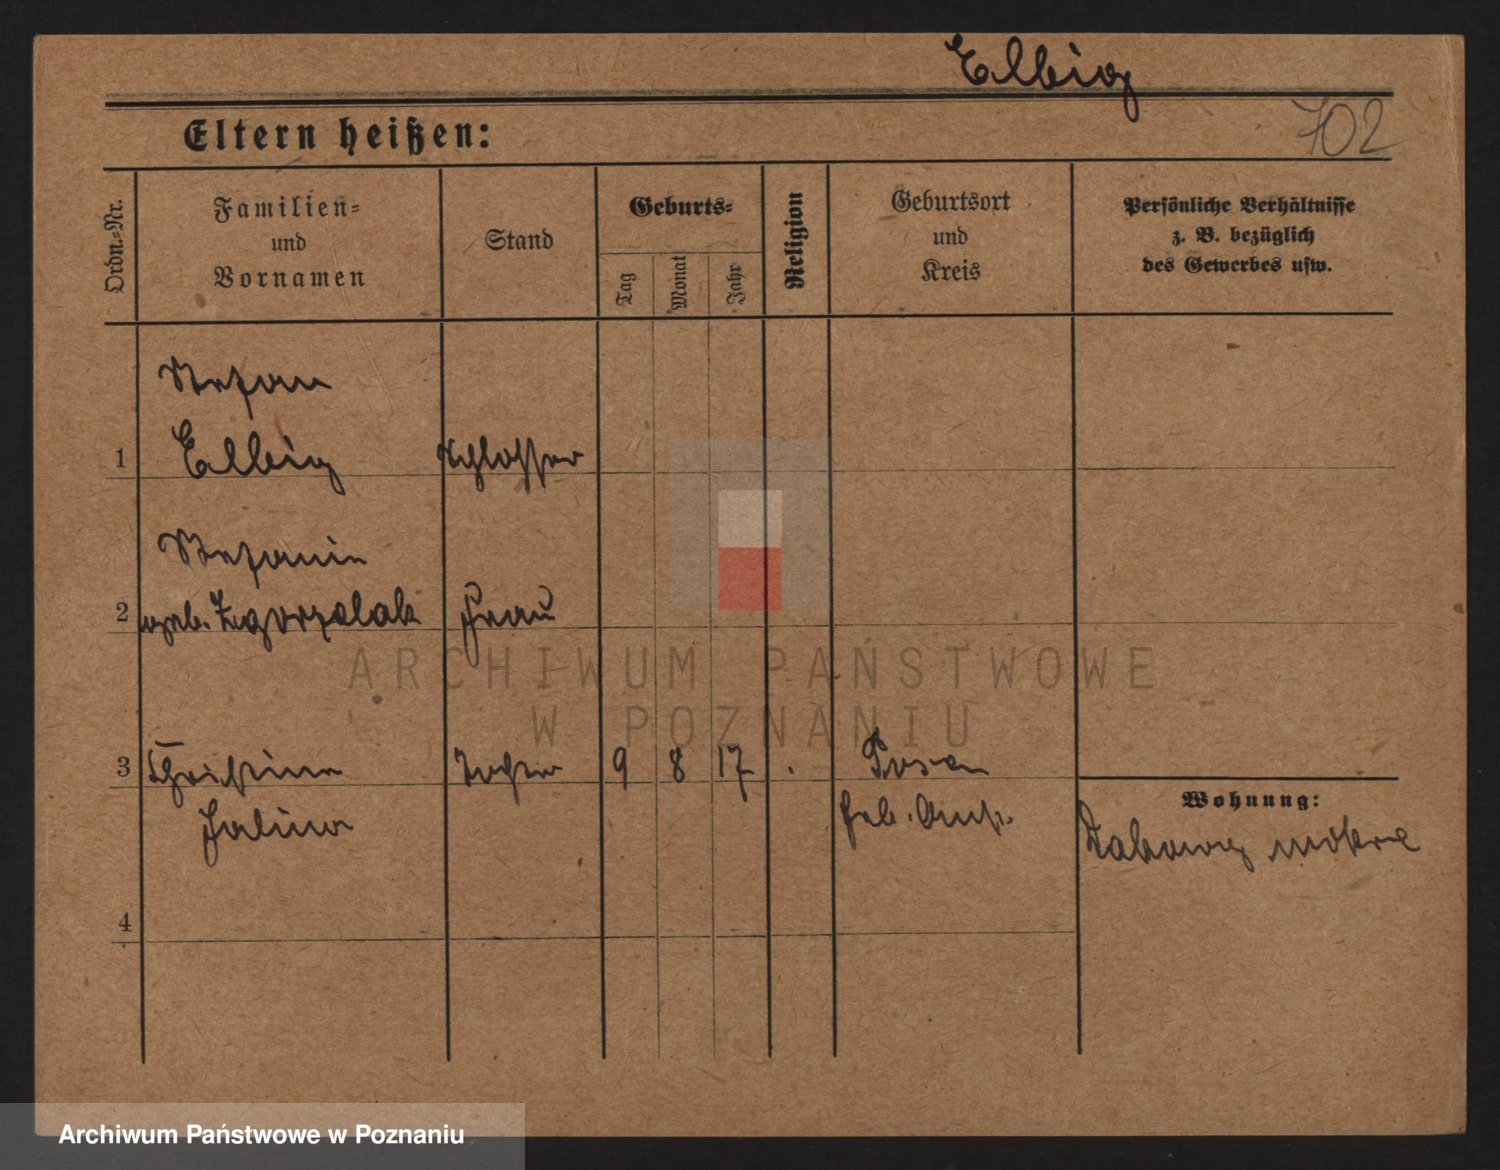 Elbig
702
Eltern heißen:
Ordn.-Nr.
Familien-
und
Vornamen
Stand
Geburts-
Tag
Monat
Jahr
Religion
Geburtsort
und
Kreis
Persönliche Verhältnisse
z. B. bezüglich
des Gewerbes usw.
Stefan
1 Elbig Schlosser
Stefanie
2 geb. Frau
3 Christine Tochter 9 8 17 Posen
Halina
Wohnung:
mokre
4
ARCHIWUM PAŃSTWOWE
W POZNANIU
Archiwum Państwowe w Poznaniu